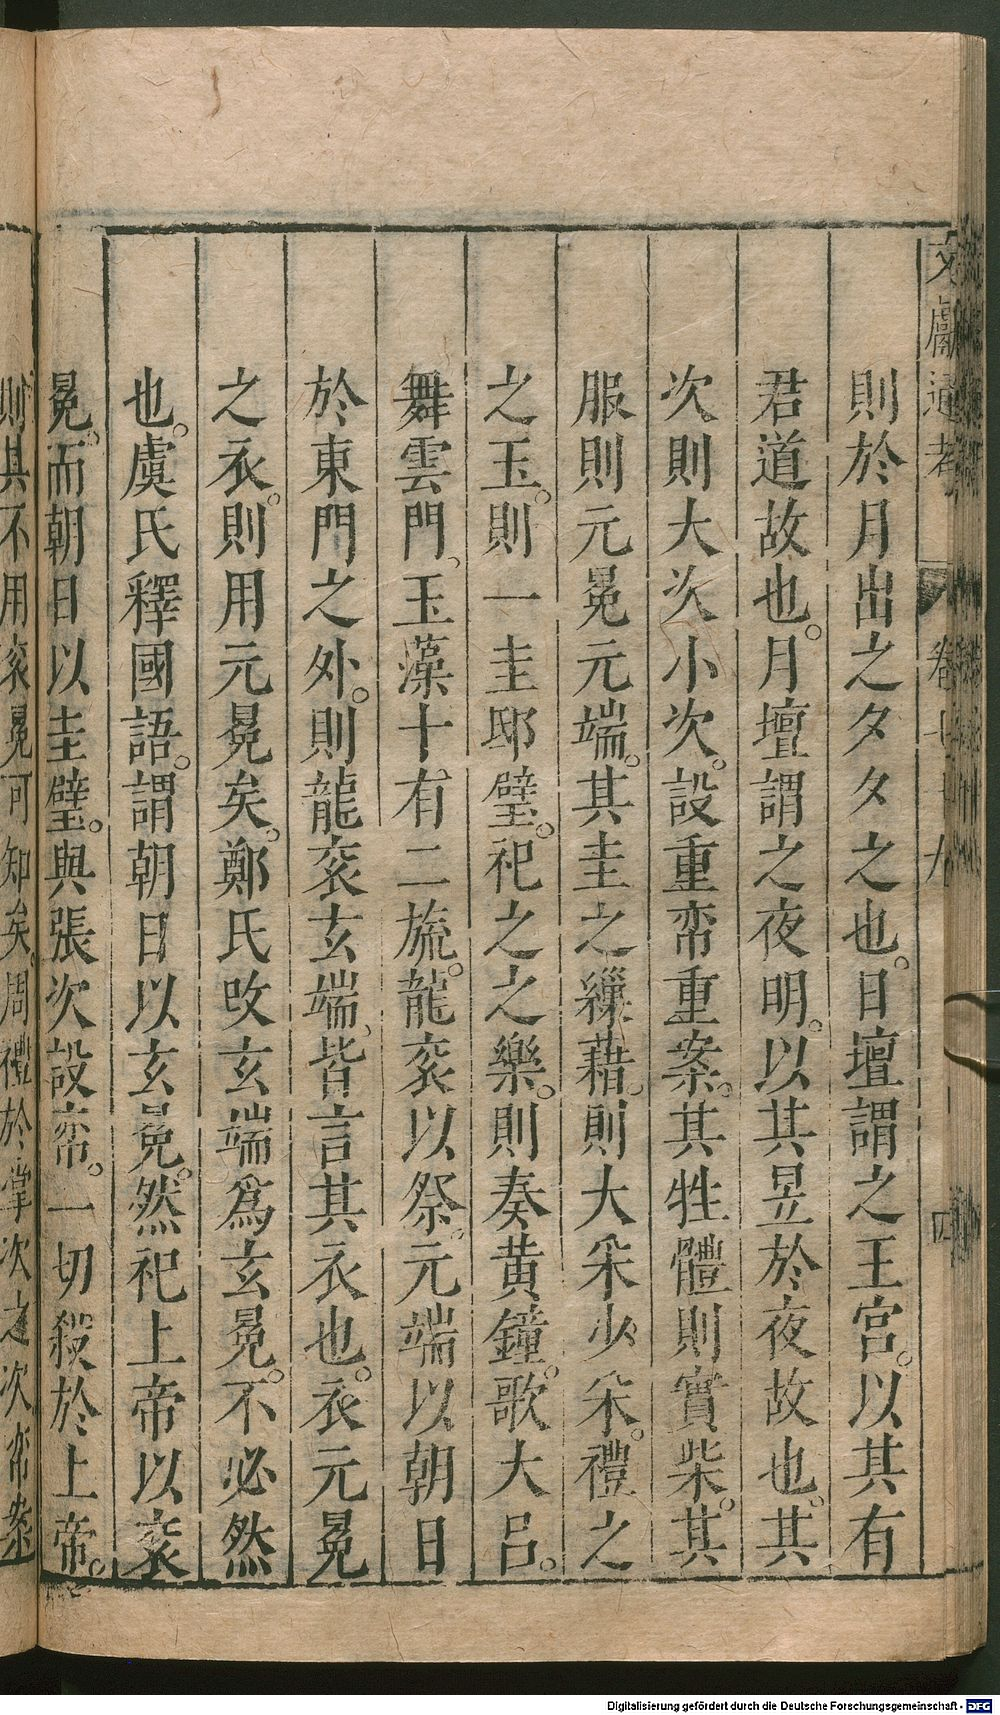 文獻通考 卷七十九 四
則於月出之夕夕之也。日壇謂之王宮。以其有
君道故也。月壇謂之夜明。以其昱於夜故也。其
次則大次小次。設重帟重案。其牲體則實柴。其
服則元冕元端。其圭之繅藉。則大采少采。禮之
之玉。則一圭邸璧。祀之之樂。則奏黃鐘。歌大呂。
舞雲門。玉藻十有二旒。龍衮以祭。元端以朝日
於東門之外。則龍衮玄端、皆言其衣也。衣元冕
之衣。則用元冕矣。鄭氏改玄端爲玄冕。不必然
也。虞氏釋國語。謂朝日以玄冕。然祀上帝以衮
冕。而朝日以圭璧。與張次設帟。一切殺於上帝。
則其不用衮冕可知矣。周禮於掌次之次帟案
Digitalisierung gefördert durch die Deutsche Forschungsgemeinschaft - DFG